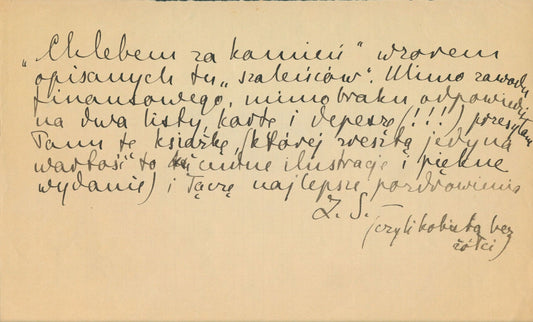 „Chlebem za kamień" wzorem
opisanych tu „szaleńców". Mimo zawodu
finansowego, mimo braku odpowiedzi
na dwa listy, kartę i depeszę (!!!) przesyłam
Panu tę książkę, (której zresztą jedyną
wartość to cudne ilustracje i piękne
wydanie) i łączę najlepsze pozdrowienia
Z. S.
(czyli kobieta bez
żółci)